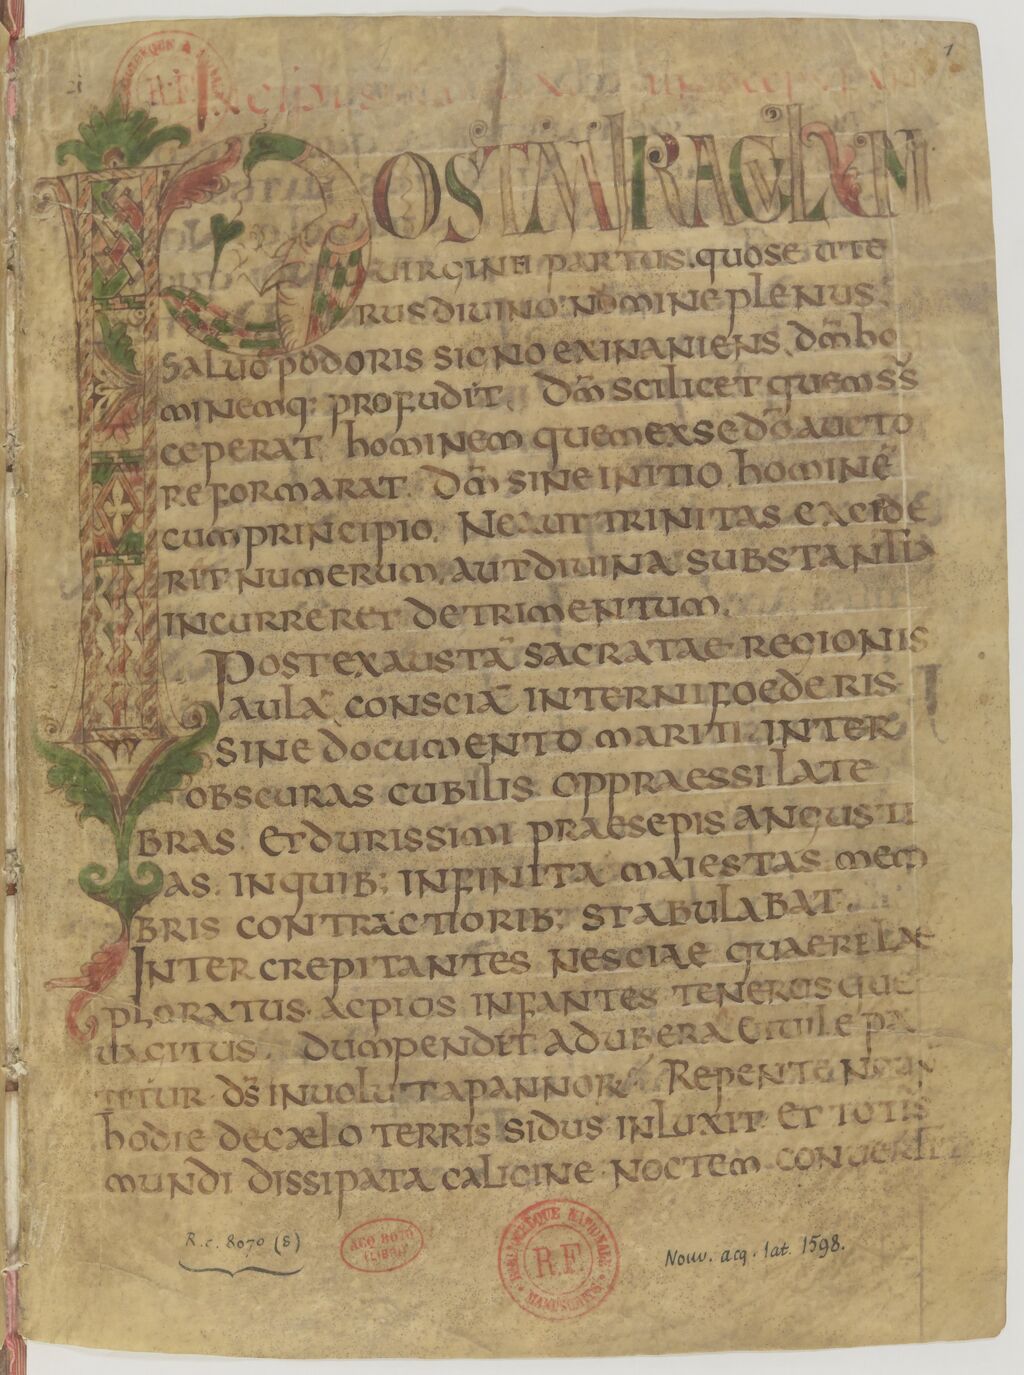 1
POST MIRACVLVM
VIRGINEI PARTUS. quose ute
RUS DIUINO NOMINE PLENUS.
SALUO PUDORIS SIGNO EXINANIENS. dm̄ ho
MINEMQ; PROFUDIT. dm̄ SCILICET quem
CEPERAT. hOMINEM quem EX SE dō AUCTO
REFORMARAT. dm̄ SINE INITIO. hOMINē
CUM PRINCIPIO. NE AUT TRINITAS EXCIDE
RIT NUMERUM. AUT DIUINA SUBSTANTIA
INCURRERET DETRIMENTUM.
POST EXAUSTĀ SACRATAE REGIONIS
AULĀ CONSCIĀ INTERNI FOEDERIS
SINE DOCUMENTO MARITI. INTER
OBSCURAS CUBILIS OPPRAESSI LATE
BRAS. ET DURISSIMI PRAESEPIS ANGUSTI
AS. IN QUIB; INFINITA MAIESTAS MEM
BRIS CONTRACTIORIB; STABULABAT.
INTER CREPITANTES NESCIAE QUAERELAE
PLORATUS. AC PIOS INFANTES TENEROSQUE
UAGITUS. DUM PENDET AD UBERA ET UILE PA
TITUR d̄s INUOLUTA PANNORŪ. REPENTE
hODIE DE CAELO TERRIS SIDUS INLUXIT. ET TOTIS
MUNDI DISSIPATA CALIGINE NOCTEM
R.c. 8070 (8)
ACQ 8070
(LIBRI)
BIBLIOTHEQUE NATIONALE
R.F.
MANUSCRITS
Nouv. acq. lat. 1598.